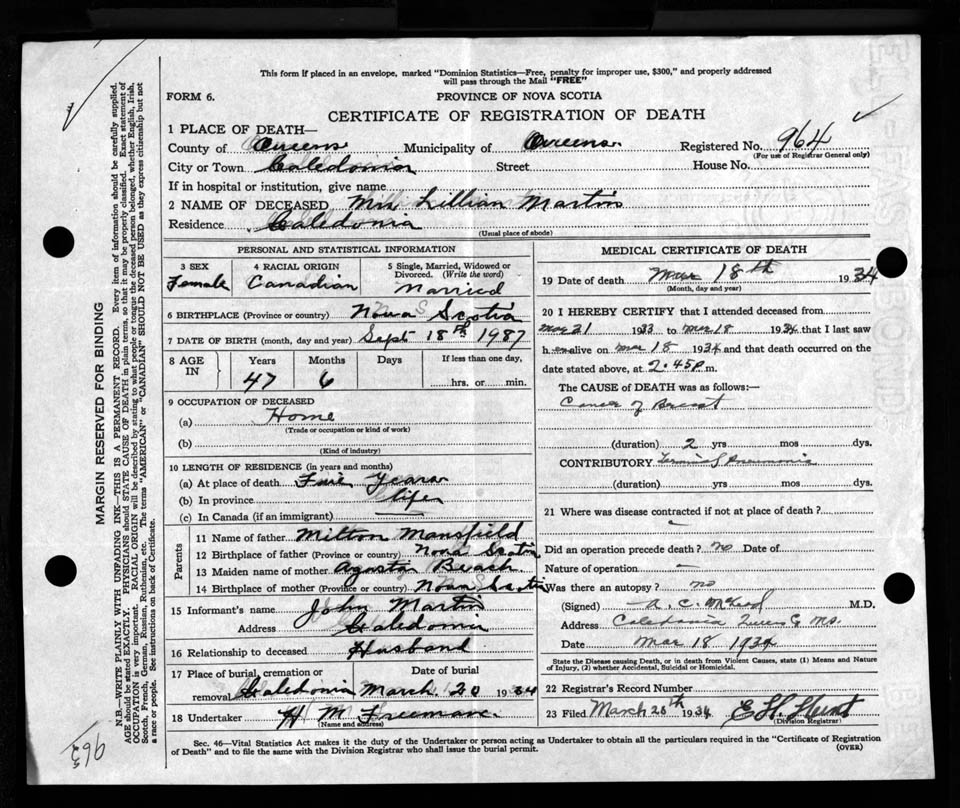 This form if placed in an envelope, marked "Dominion Statistics—Free, penalty for improper use, $300," and properly addressed
will pass through the Mail "FREE"
FORM 6.
PROVINCE OF NOVA SCOTIA
CERTIFICATE OF REGISTRATION OF DEATH
1 PLACE OF DEATH—
County of Queens Municipality of Queens Registered No. 964
(For use of Registrar General only)
City or Town Caledonia Street House No.
If in hospital or institution, give name
2 NAME OF DECEASED Mrs Lillian Martin
Residence Caledonia
(Usual place of abode)
PERSONAL AND STATISTICAL INFORMATION
3 SEX 4 RACIAL ORIGIN 5 Single, Married, Widowed or
Divorced. (Write the word)
Female Canadian Married
6 BIRTHPLACE (Province or country) Nova Scotia
7 DATE OF BIRTH (month, day and year) Sept 18th 1987
8 AGE IN Years Months Days If less than one day,
47 6 hrs. or min.
9 OCCUPATION OF DECEASED
(a) Home
(Trade or occupation or kind of work)
(b)
(Kind of industry)
10 LENGTH OF RESIDENCE (in years and months)
(a) At place of death Years
(b) In province life
(c) In Canada (if an immigrant)
Parents
11 Name of father Milton Mansfield
12 Birthplace of father (Province or country) Nova Scotia
13 Maiden name of mother
14 Birthplace of mother (Province or country) Nova Scotia
15 Informant's name John Martin
Address Caledonia
16 Relationship to deceased Husband
17 Place of burial, cremation or Date of burial
removal Caledonia March 20 1934
18 Undertaker H M Freeman
(Name and address)
MEDICAL CERTIFICATE OF DEATH
19 Date of death Mar 18th 1934
(Month, day and year)
20 I HEREBY CERTIFY that I attended deceased from
21 1933 to Mar 18 1934 that I last saw
h er alive on Mar 18 1934 and that death occurred on the
date stated above, at 2.45 P.m.
The CAUSE of DEATH was as follows:—
Cancer of Breast
(duration) 2 yrs mos dys.
CONTRIBUTORY Terminal Pneumonia
(duration) yrs mos dys.
21 Where was disease contracted if not at place of death?
Did an operation precede death? no Date of
Nature of operation —
Was there an autopsy? no
(Signed) M.D.
Address Caledonia Queens Co N.S.
Date Mar 18 1934
State the Disease causing Death, or in death from Violent Causes, state (1) Means and Nature
of Injury, (2) whether Accidental, Suicidal or Homicidal.
22 Registrar's Record Number
23 Filed March 1934 E H Hunt
(Division Registrar)
Sec. 46—Vital Statistics Act makes it the duty of the Undertaker or person acting as Undertaker to obtain all the particulars required in the "Certificate of Registration
of Death" and to file the same with the Division Registrar who shall issue the burial permit.
(OVER)
MARGIN RESERVED FOR BINDING
N.B.—WRITE PLAINLY WITH UNFADING INK—THIS IS A PERMANENT RECORD. Every item of information should be carefully supplied.
AGE should be stated EXACTLY. PHYSICIANS should STATE CAUSE OF DEATH in plain terms, so that it may be properly classified. Exact statement of
OCCUPATION is very important. RACIAL ORIGIN will be described by stating to what people or tongue the deceased person belonged, whether English, Irish,
Scotch, French, German, Russian, Ruthenian, etc. The terms "AMERICAN" or "CANADIAN" SHOULD NOT BE USED as they express citizenship but not
a race or people. See instructions on back of Certificate.